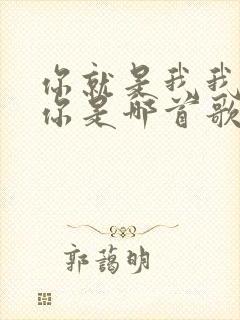 你就是我我
你是哪首歌
郭蔼明